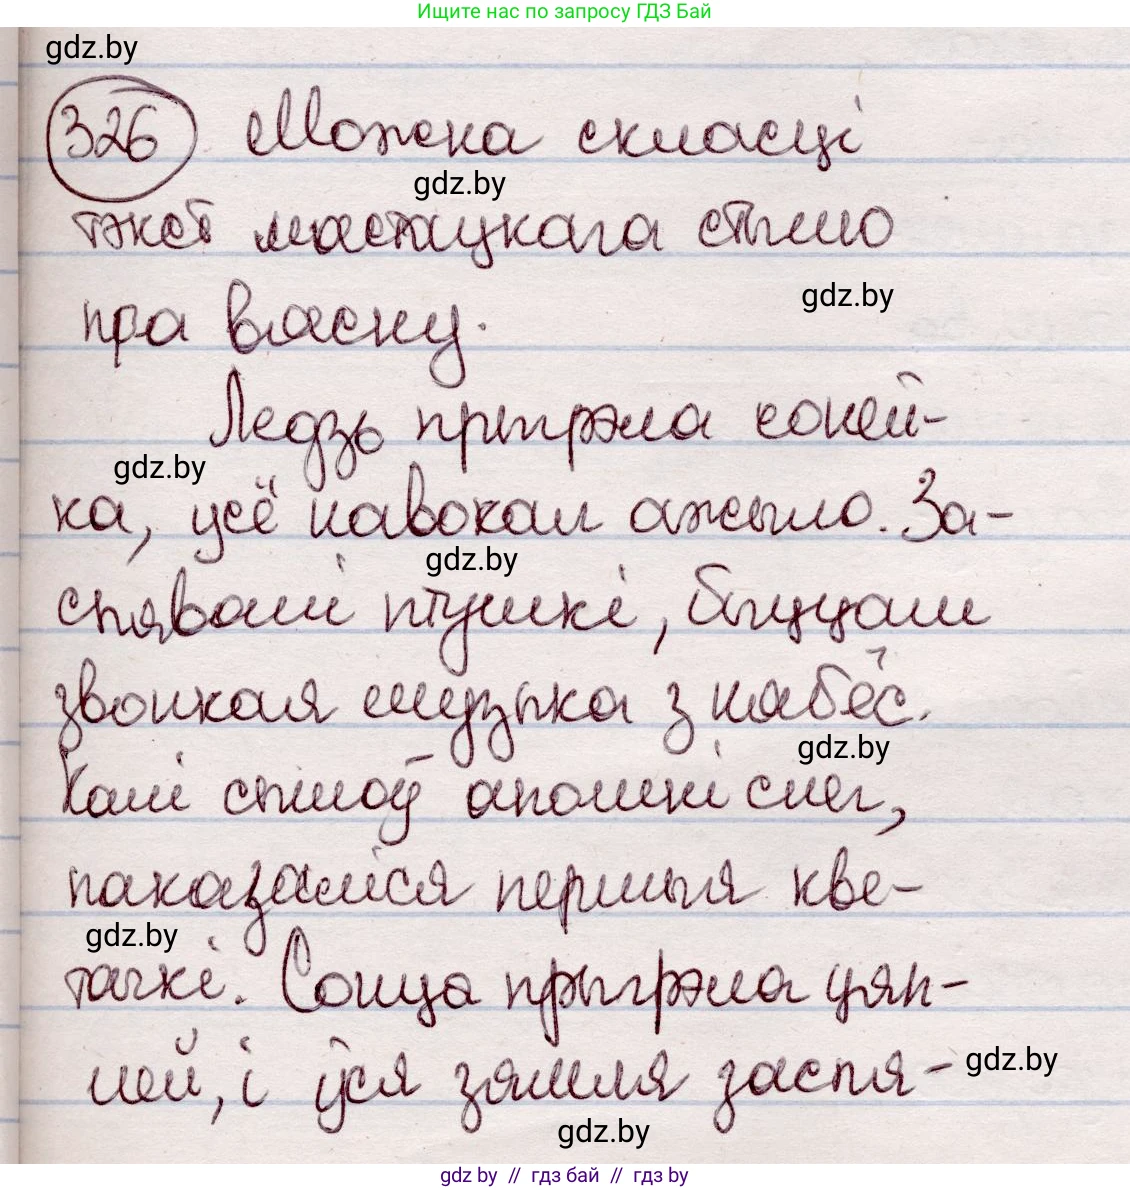 Ищите нас по запросу ГДЗ Бай
gdz.by
326 Можна скласці
gdz.by
тэкст мастацкага стылю
gdz.by
пра вясну.
Ледзь прыгрэла соней-
gdz.by
ка, усё навокал ажыло. За-
gdz.by
спявалі птушкі, быццам
звонкая музыка з нябёс.
gdz.by
Калі сышоў апошні снег,
паказаліся першыя кве-
gdz.by
тачкі. Сонца прыгрэла цяп-
лей, і ўся зямля заспя-
gdz.by
gdz.by
gdz.by // гдз бай // гдз by